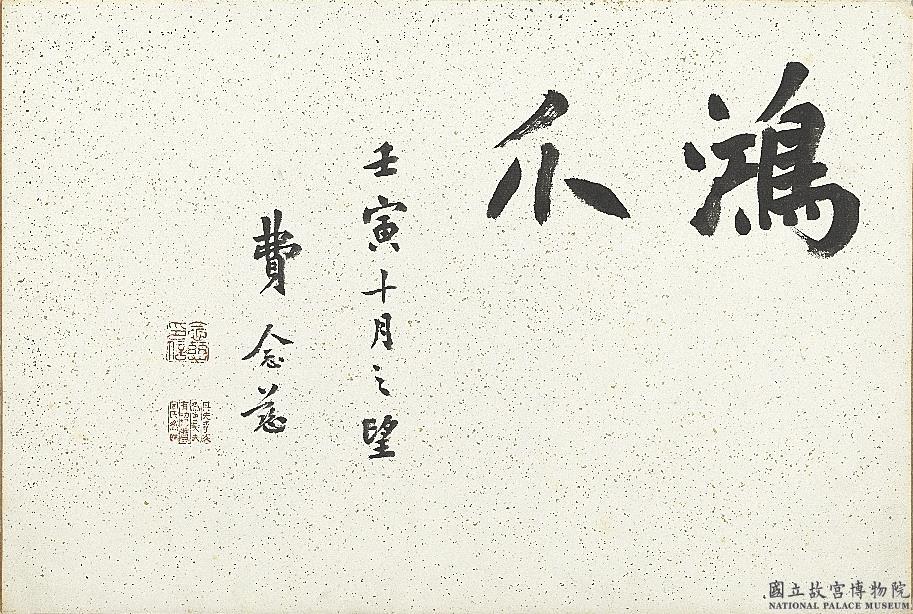 鴻爪
壬寅十月之望
費念慈
國立故宮博物院
NATIONAL PALACE MUSEUM